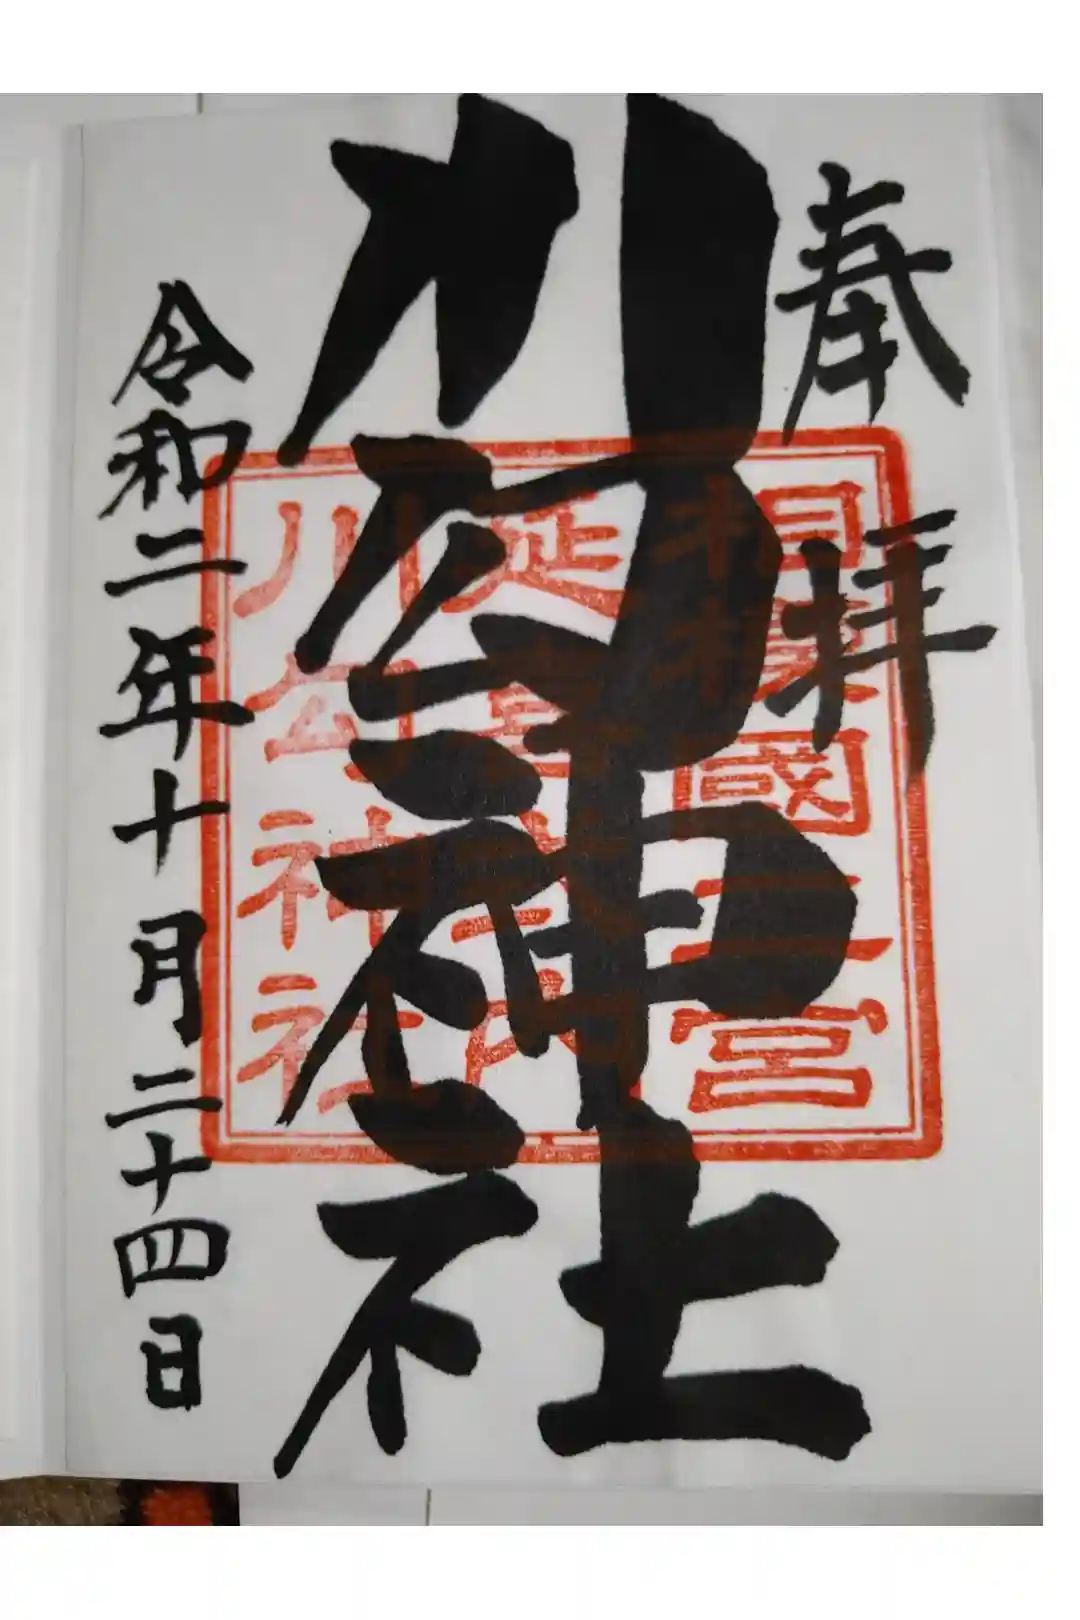 奉拝
川匂神社
相模國二宮
延喜式内
川匂神社
令和二年十月二十四日